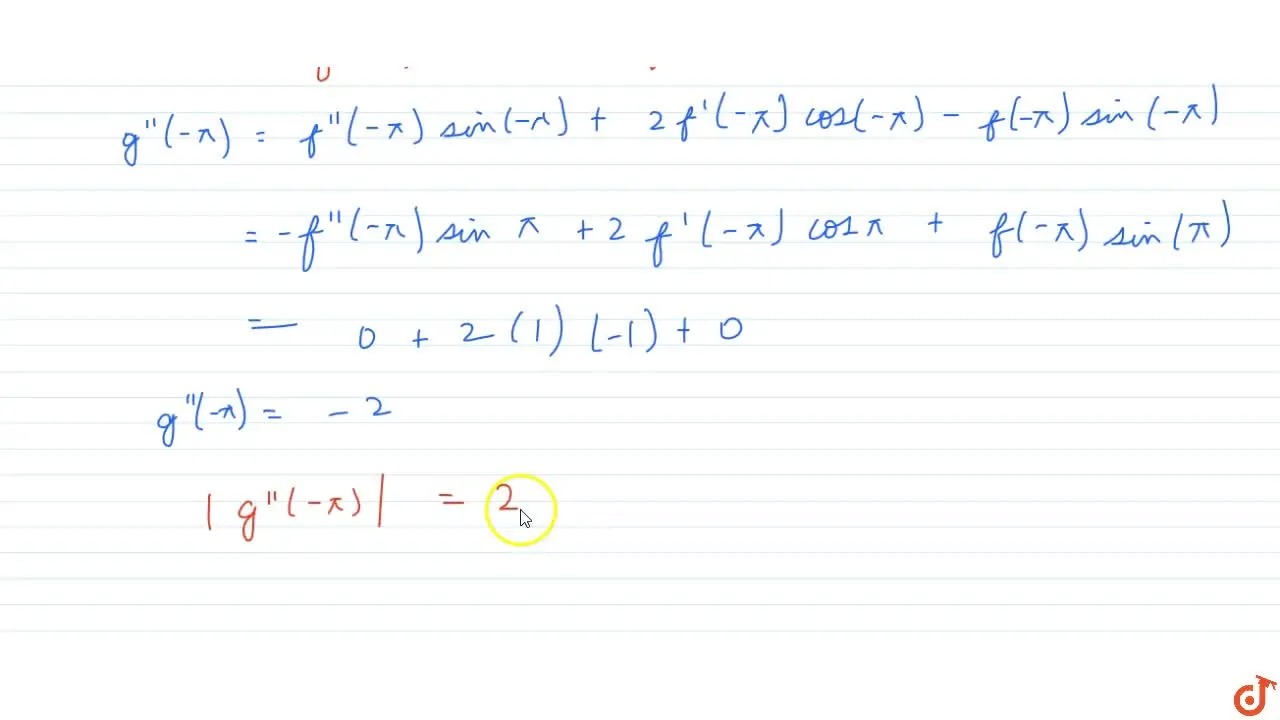 g''(-π) = f''(-π) sin(-π) + 2f'(-π) cos(-π) - f(-π) sin(-π)
= -f''(-π) sin π + 2 f'(-π) cos π + f(-π) sin(π)
= 0 + 2 (1) (-1) + 0
g''(-π) = - 2
| g''(-π) | = 2